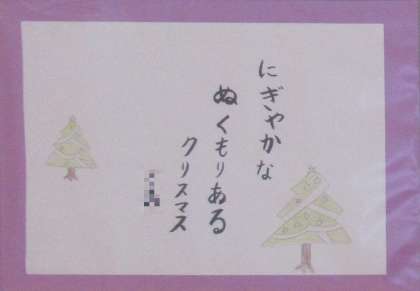 にぎやかな
ぬくもりある
クリスマス